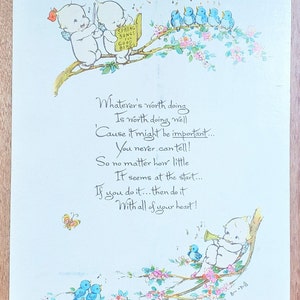 Whatever's worth doing
Is worth doing well
'Cause it might be important...
You never can tell!
So no matter how little
It seems at the start...
If you do it...then do it
With all of your heart!